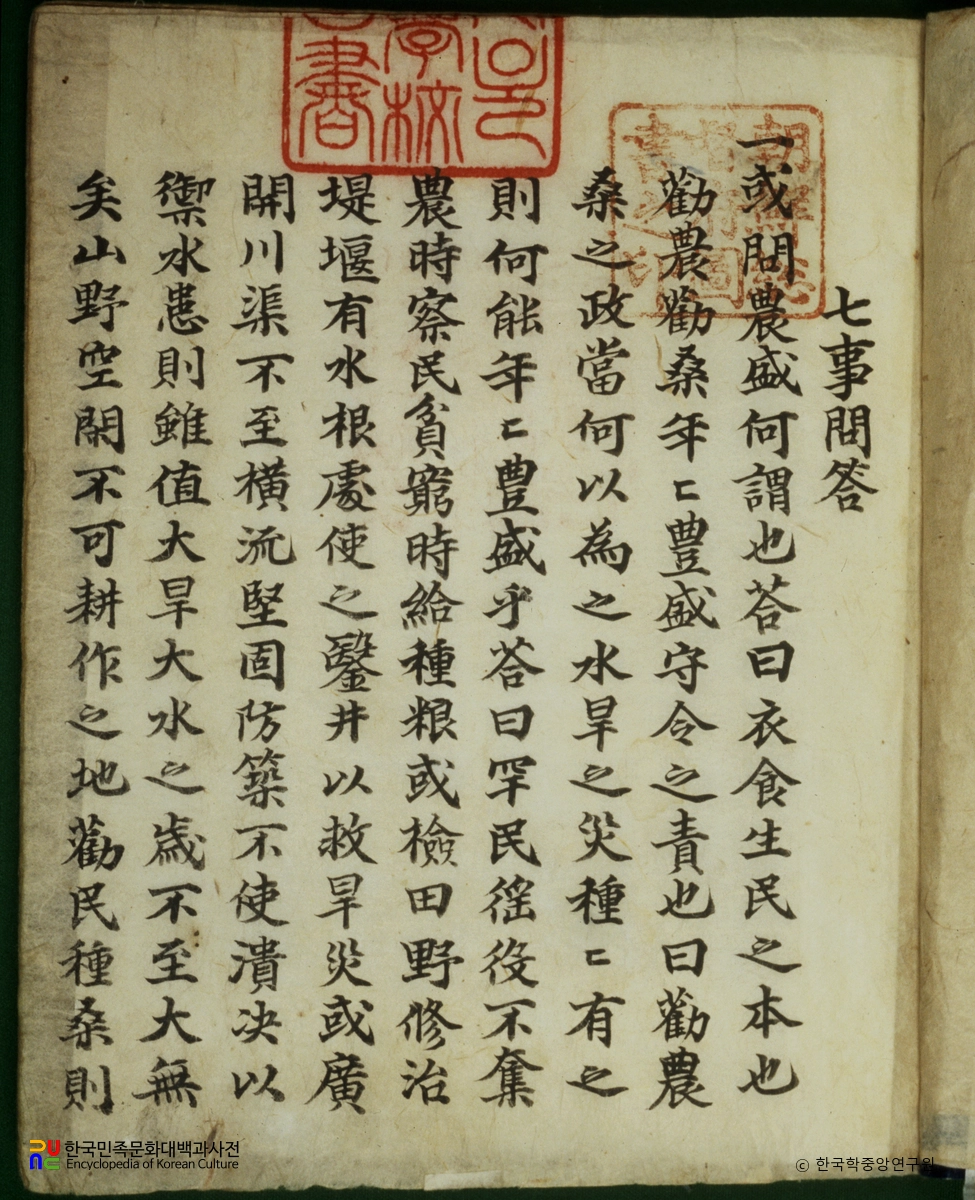 七事問答
一或問農盛何謂也荅曰衣食生民之本也
勸農勸桑年〻豊盛守令之責也曰勸農
桑之政當何以為之水旱之災種〻有之
則何能年〻豊盛乎荅曰罕民徭役不奪
農時察民貧窮時給種粮或檢田野修治
堤堰有水根處使之鑿井以救旱災或廣
開川渠不至橫流堅固防築不使潰决以
禦水患則雖值大旱大水之歲不至大無
矣山野空閑不可耕作之地勸民種桑則
한국민족문화대백과사전
Encyclopedia of Korean Culture
ⓒ 한국학중앙연구원